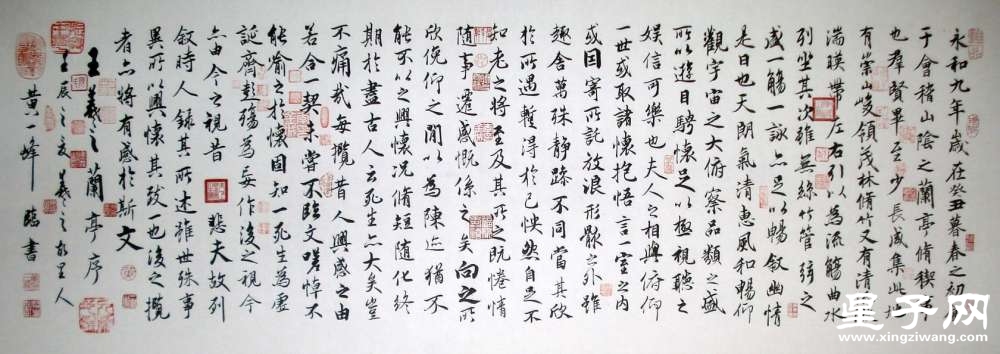 永和九年歲在癸丑暮春之初
于會稽山陰之蘭亭脩稧
也群賢畢至少長咸集此地
有崇山峻領茂林脩竹又有清
湍暎帶左右引以為流觴曲水
列坐其次雖無絲竹管弦之
盛一觴一詠亦足以暢敘幽情
是日也天朗氣清惠風和暢仰
觀宇宙之大俯察品類之盛
所以遊目騁懷足以極視聽之
娛信可樂也夫人之相與俯仰
一世或取諸懷抱悟言一室之內
或因寄所託放浪形骸之外雖
趣舍萬殊靜躁不同當其欣
於所遇暫得於己怏然自足不
知老之將至及其所之既惓情
隨事遷感慨係之矣向之所
欣俛仰之閒以為陳迹猶不
能不以之興懷況脩短隨化終
期於盡古人云死生亦大矣豈
不痛哉每攬昔人興感之由
若合一契未嘗不臨文嗟悼不
能喻之於懷固知一死生為虛
誕齊彭殤為妄作後之視今
亦由今之視昔悲夫故列
敘時人錄其所述雖世殊事
異所以興懷其致一也後之攬
者亦將有感於斯文
王羲之蘭亭序
壬辰之 羲之故里人
黃一峰 臨書
星子网
www.xingziwang.com